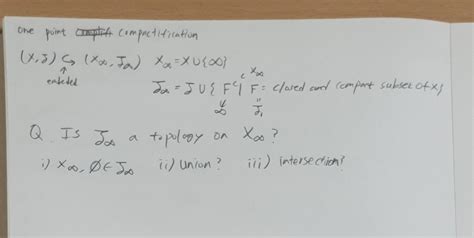 one point compactification
(X, J) ↪ (X∞, J∞) X∞ = X ∪ {∞}
↑
embeded
J∞ = J ∪ { F^c | F = closed and compact subset of X }
X∞
∞
Q. Is J∞ a topology on X∞ ?
i) X∞, ∅ ∈ J∞ ii) Union ? iii) intersection ?